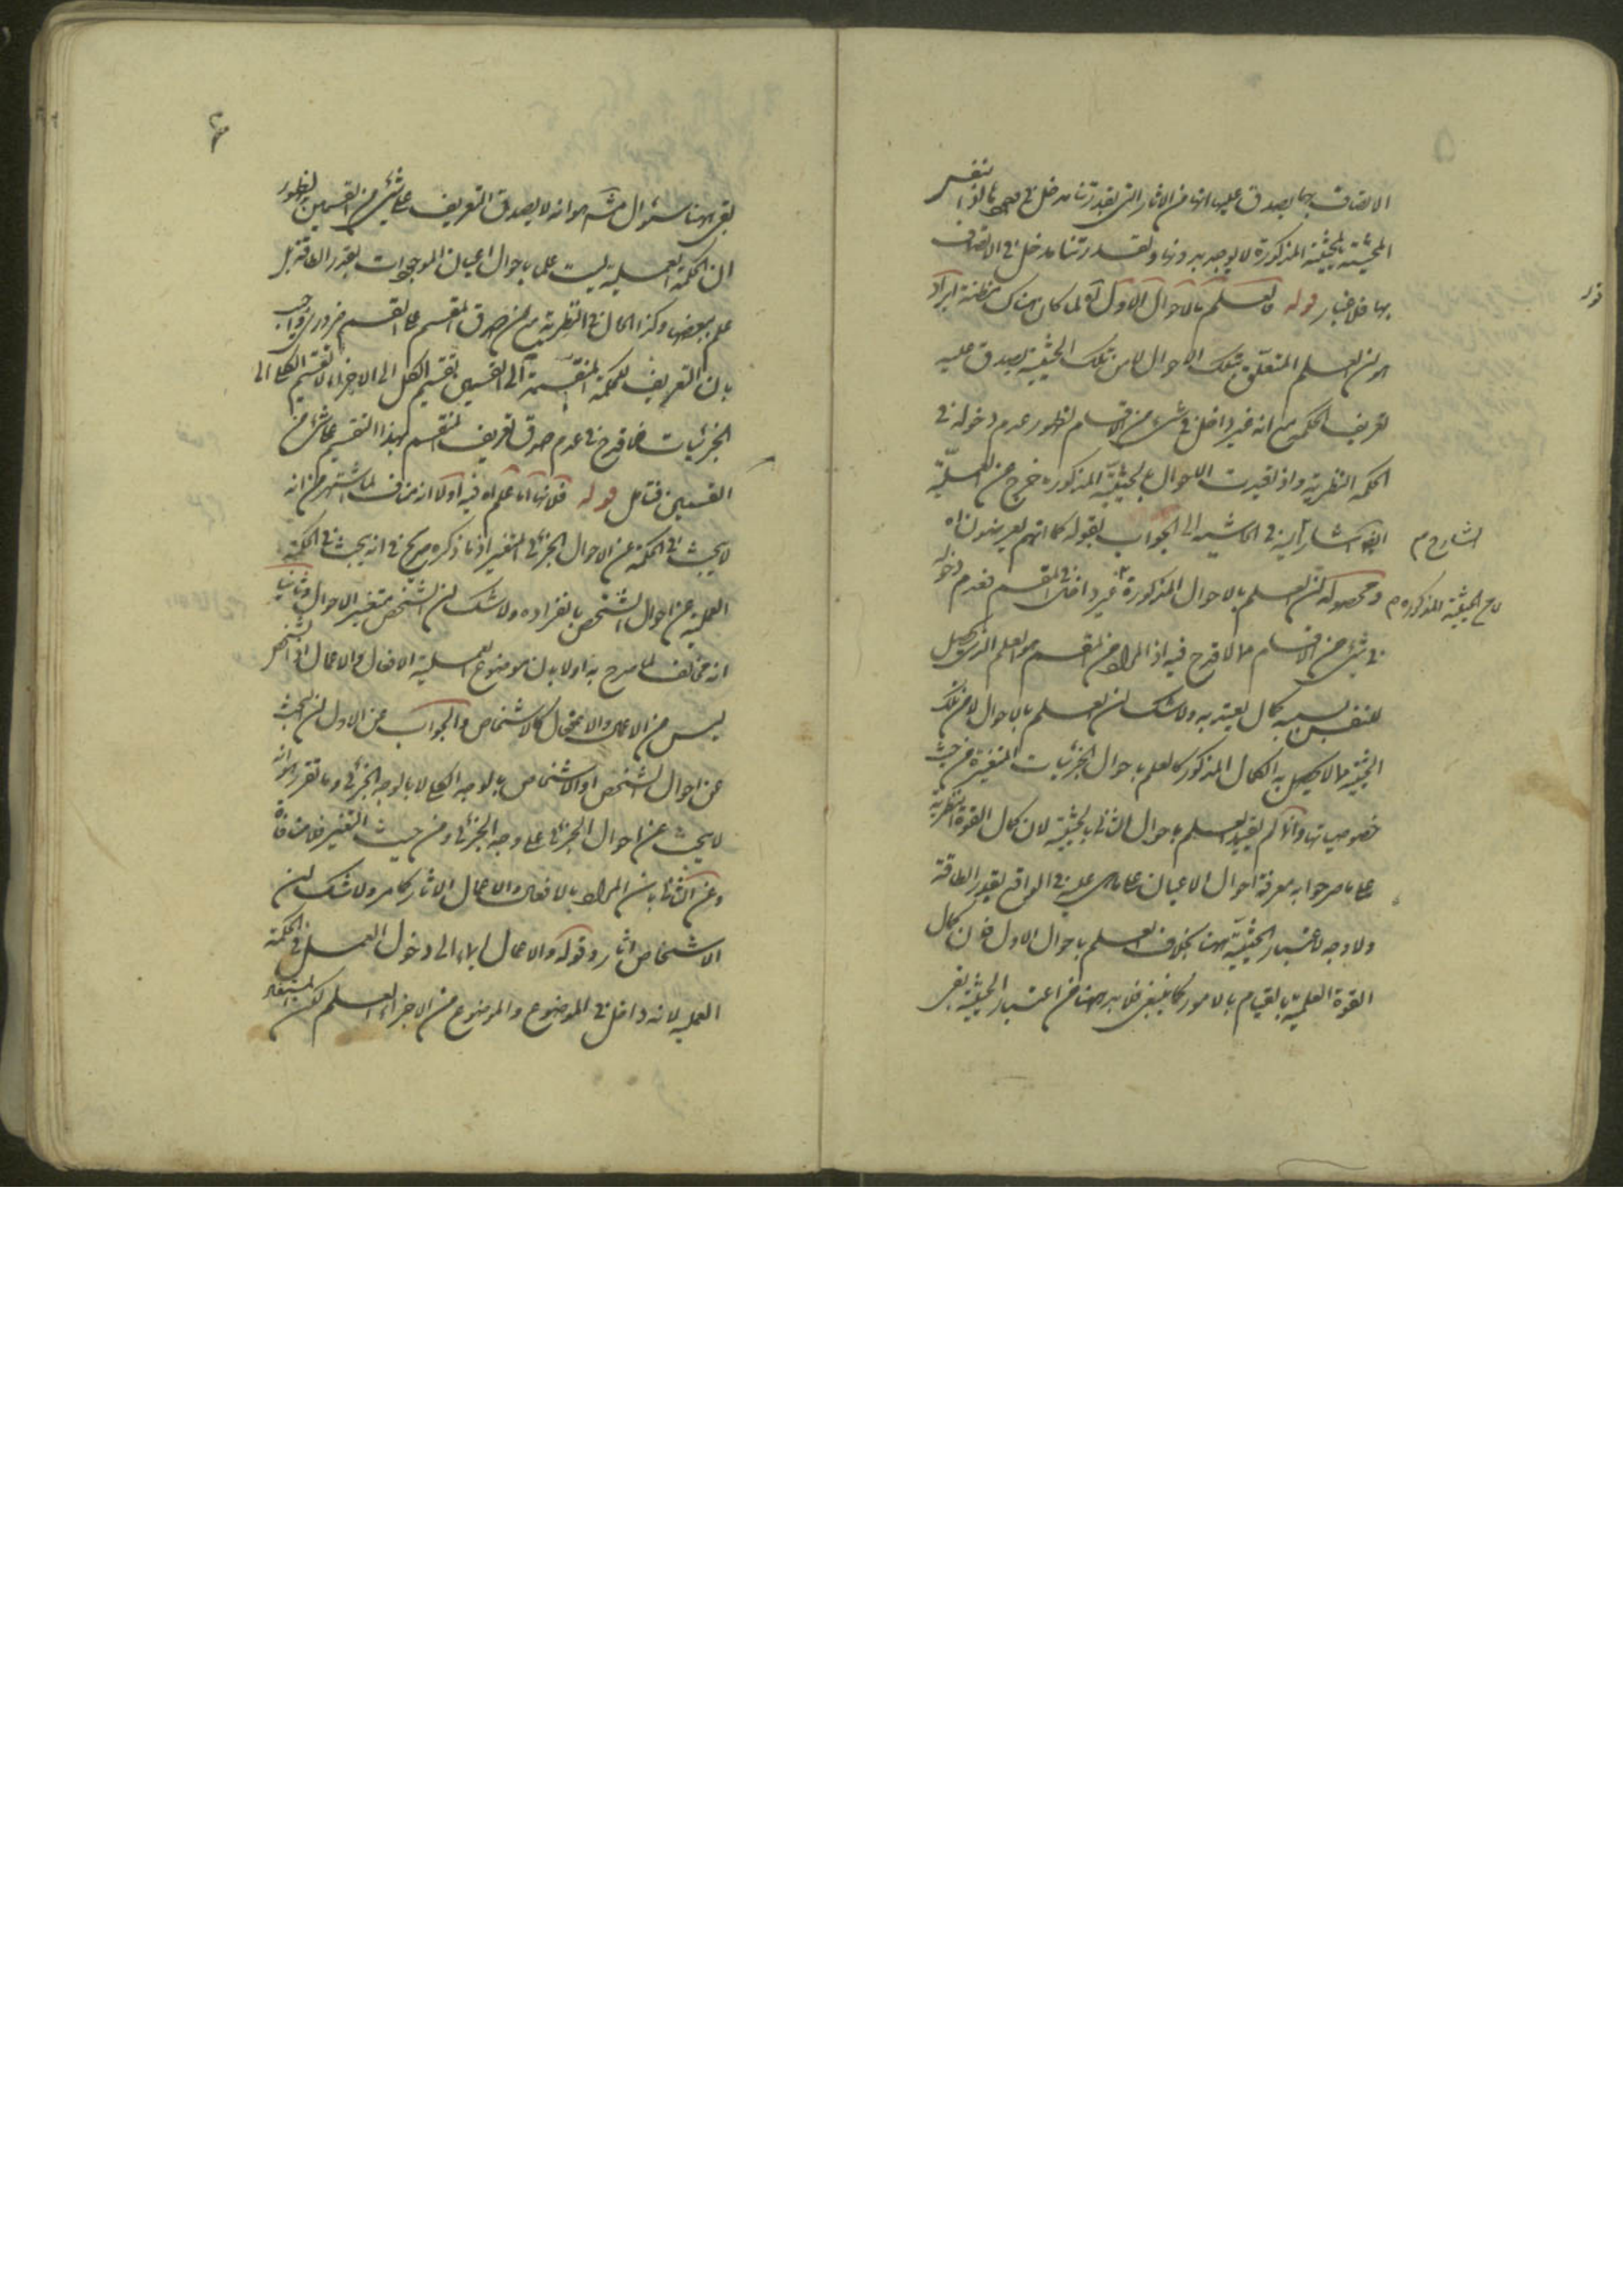 الاتصاف بها يصدق عليها انها من الاثار التي لقدرتنا مدخل في وجودها لان
المحيثة بالحيثية المذكورة لا يوجد بدونها ولقدرتنا مدخل في الاتصاف
بها فلا غبار قوله فالعلم بالاحوال الاول آه لما كان هناك مظنة ايراد
هو ان العلم المتعلق بتلك الاحوال لا من تلك الحيثية يصدق عليه
تعريف الحكمة مع انه غير داخل في شيء من الاقسام لظهور عدم دخوله في
الحكمة النظرية واذ لقيدت الاحوال بالحيثية المذكورة خرج من العملية
ايضا اشار اليه في الحاشية الى الجواب بقوله كما انهم يعرضون اه
الشارح م
ومحصوله ان العلم بالاحوال المذكورة غير داخل في المقسم فعدم دخوله
لا مع الحيثية المذكورة م
في شيء من الاقسام مما لا قدح فيه اذ المراد من المقسم هو العلم الذي يحصل
للنفس بسببه كمال يعتد به ولا شك ان العلم بالاحوال لا من تلك
الحيثية مما لا يحصل به الكمال المذكور كالعلم باحوال الجزئيات المتغيرة من حيث
خصوصياتها وانما لم يقيد العلم باحوال الثاني بالحيثية لان كمال القوة النظرية
على ما صرحوا به معرفة احوال الاعيان على ما هي عليه في الواقع بقدر الطاقة
ولا وجه لاعتبار الحيثية هنا بخلاف العلم باحوال الاول فان كمال
القوة العملية بالقيام بالامور كما ينبغي فلا بد ههنا من اعتبار الحيثية بقي
بقي ههنا سؤال مش هو انه لا يصدق التعريف على شيء من القسمين لظهور
ان الحكمة العملية ليست علما باحوال اعيان الموجودات بقدر الطاقة بل
علم ببعضها وكذا الحال في النظرية مع ان صدق المقسم على القسم ضروري واجيب
بان التعريف للحكمة المنقسمة الى القسمين تقسيم الكل الى الاجزاء لا تقسيم الكلي الى
الجزئيات فما قدح في عدم صدق تعريف المنقسم بهذا التقسيم على شيء من
القسمين فتأمل قوله فلانها اما علم اه فيه اولا انه مناف لما اشتهر من انه
لا يبحث في الحكمة عن الاحوال الجزئي المتغير اذ ما ذكره صريح في انه يبحث في الحكمة
العملية عن احوال الشخص بانفراده ولا شك ان الشخص متغير الاحوال وثانيا
انه مخالف لما صرح به اولا بان موضوع العملية الافعال والاعمال اذ الشخص
ليس من الاعمال والافعال كالاشخاص والجواب عن الاول ان البحث
عن احوال الشخص او الاشخاص بالوجه الكلي لا بالوجه الجزئي وما تقرر هو انه
لا يبحث عن احوال الجزئي على وجه الجزئي ومن حيث التغير فلا منافاة
وعن الثاني بان المراد بالافعال والاعمال الاثار كما مر ولا شك ان
الاشخاص اثار وقوله والاعمال ايماء الى دخول العمل في الحكمة
العملية لانه داخل في الموضوع والموضوع من الاجزاء العلم لكن